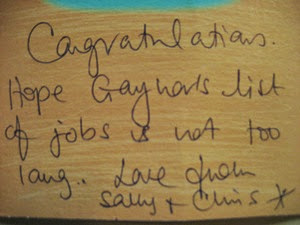 Congratulations.
Hope Gaynors list
of jobs is not too
long.. Love from
Sally + Chris